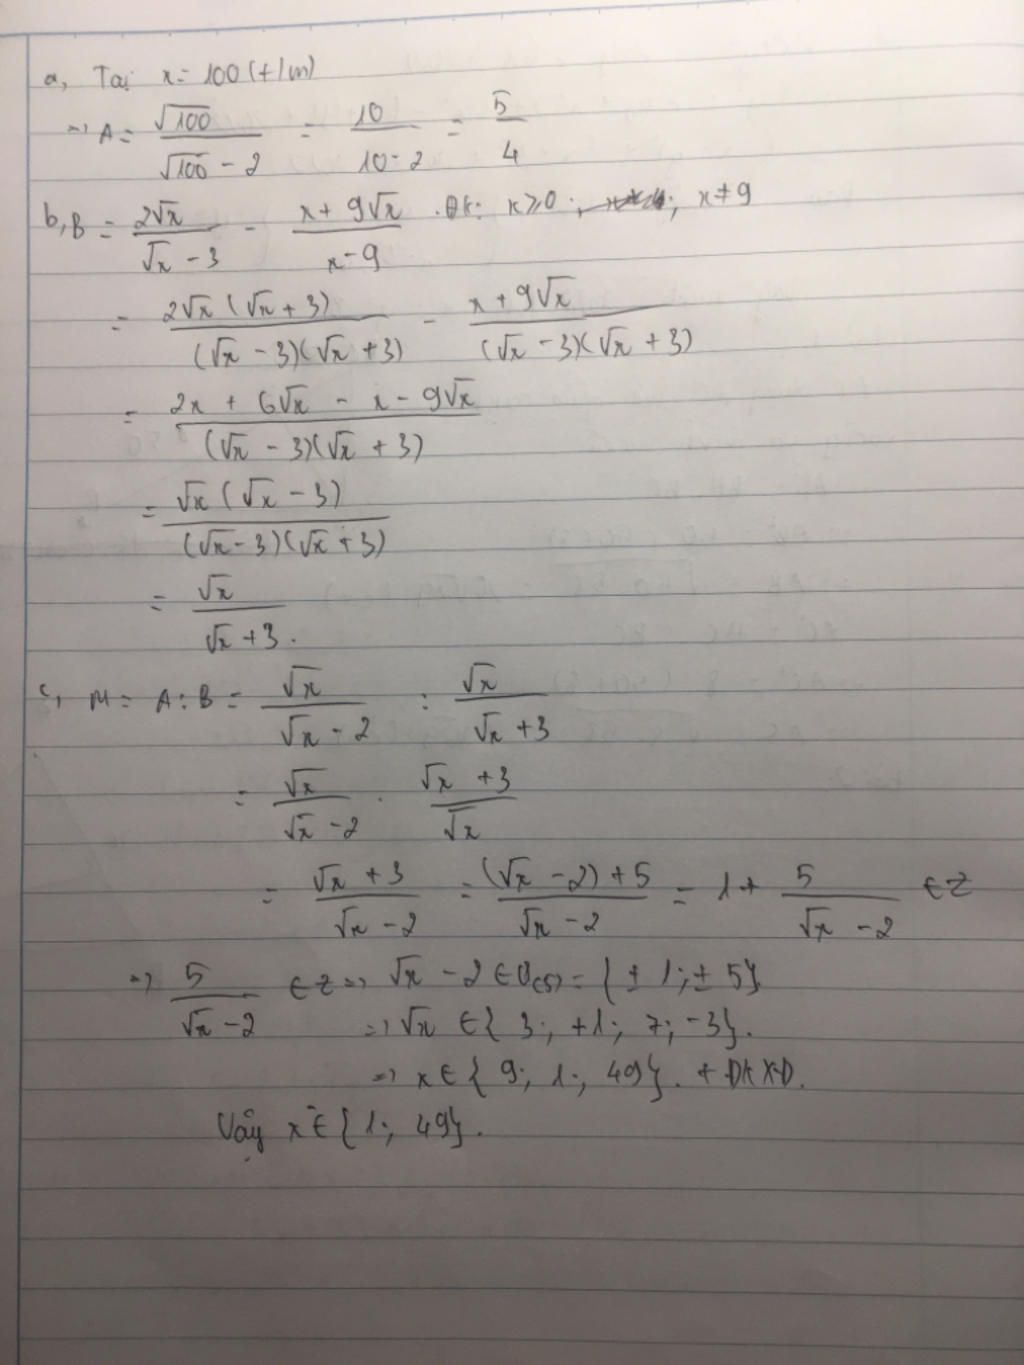 a, Tại x = 100 (t/m)
=> A = √100 / (√100 - 2) = 10 / (10 - 2) = 5/4
b, B = 2√x / (√x - 3) - (x + 9√x) / (x - 9) . ĐK: x ≥ 0 ; x ≠ 9
= 2√x (√x + 3) / (√x - 3)(√x + 3) - (x + 9√x) / (√x - 3)(√x + 3)
= (2x + 6√x - x - 9√x) / (√x - 3)(√x + 3)
= √x (√x - 3) / (√x - 3)(√x + 3)
= √x / (√x + 3) .
c, M = A : B = √x / (√x - 2) : √x / (√x + 3)
= √x / (√x - 2) . (√x + 3) / √x
= (√x + 3) / (√x - 2) = ((√x - 2) + 5) / (√x - 2) = 1 + 5 / (√x - 2) ∈ Z
=> 5 / (√x - 2) ∈ Z => √x - 2 ∈ Ư(5) = { ± 1 ; ± 5 }
=> √x ∈ { 3 ; +1 ; 7 ; -3 } .
=> x ∈ { 9 ; 1 ; 49 } . + ĐKXĐ.
Vậy x ∈ { 1 ; 49 } .